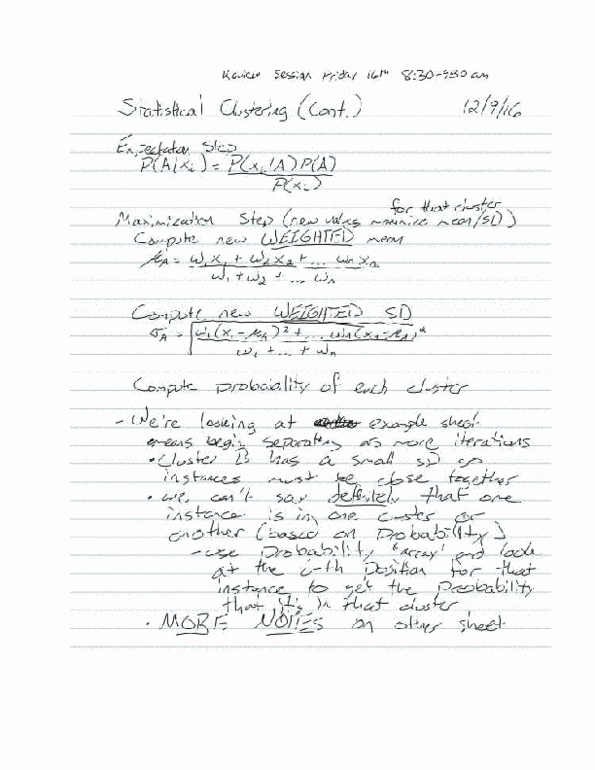 Review Session Friday 16th 8:30-9:30 am
Statistical Clustering (Cont.) 12/9/16
Expectation Step
P(A|xᵢ) = P(xᵢ|A) P(A)
P(xᵢ)
for that cluster
Maximization Step (new values maximize mean/SD)
Compute new WEIGHTED mean
μA = w₁x₁ + w₂x₂ + ... wₙxₙ
w₁ + w₂ + ... wₙ
Compute new WEIGHTED SD
σA = √ w₁(x₁-μA)² + ... wₙ(xₙ-μA)²
w₁ + ... + wₙ
Compute probability of each cluster
- We're looking at example sheet
means begin separating as more iterations
• Cluster B has a small SD so
instances must be close together
• We can't say definitely that one
instance is in one cluster or
another (based on probability)
- use probability "array" and look
at the i-th position for that
instance to get the probability
that it's in that cluster
• MORE NOTES on other sheet